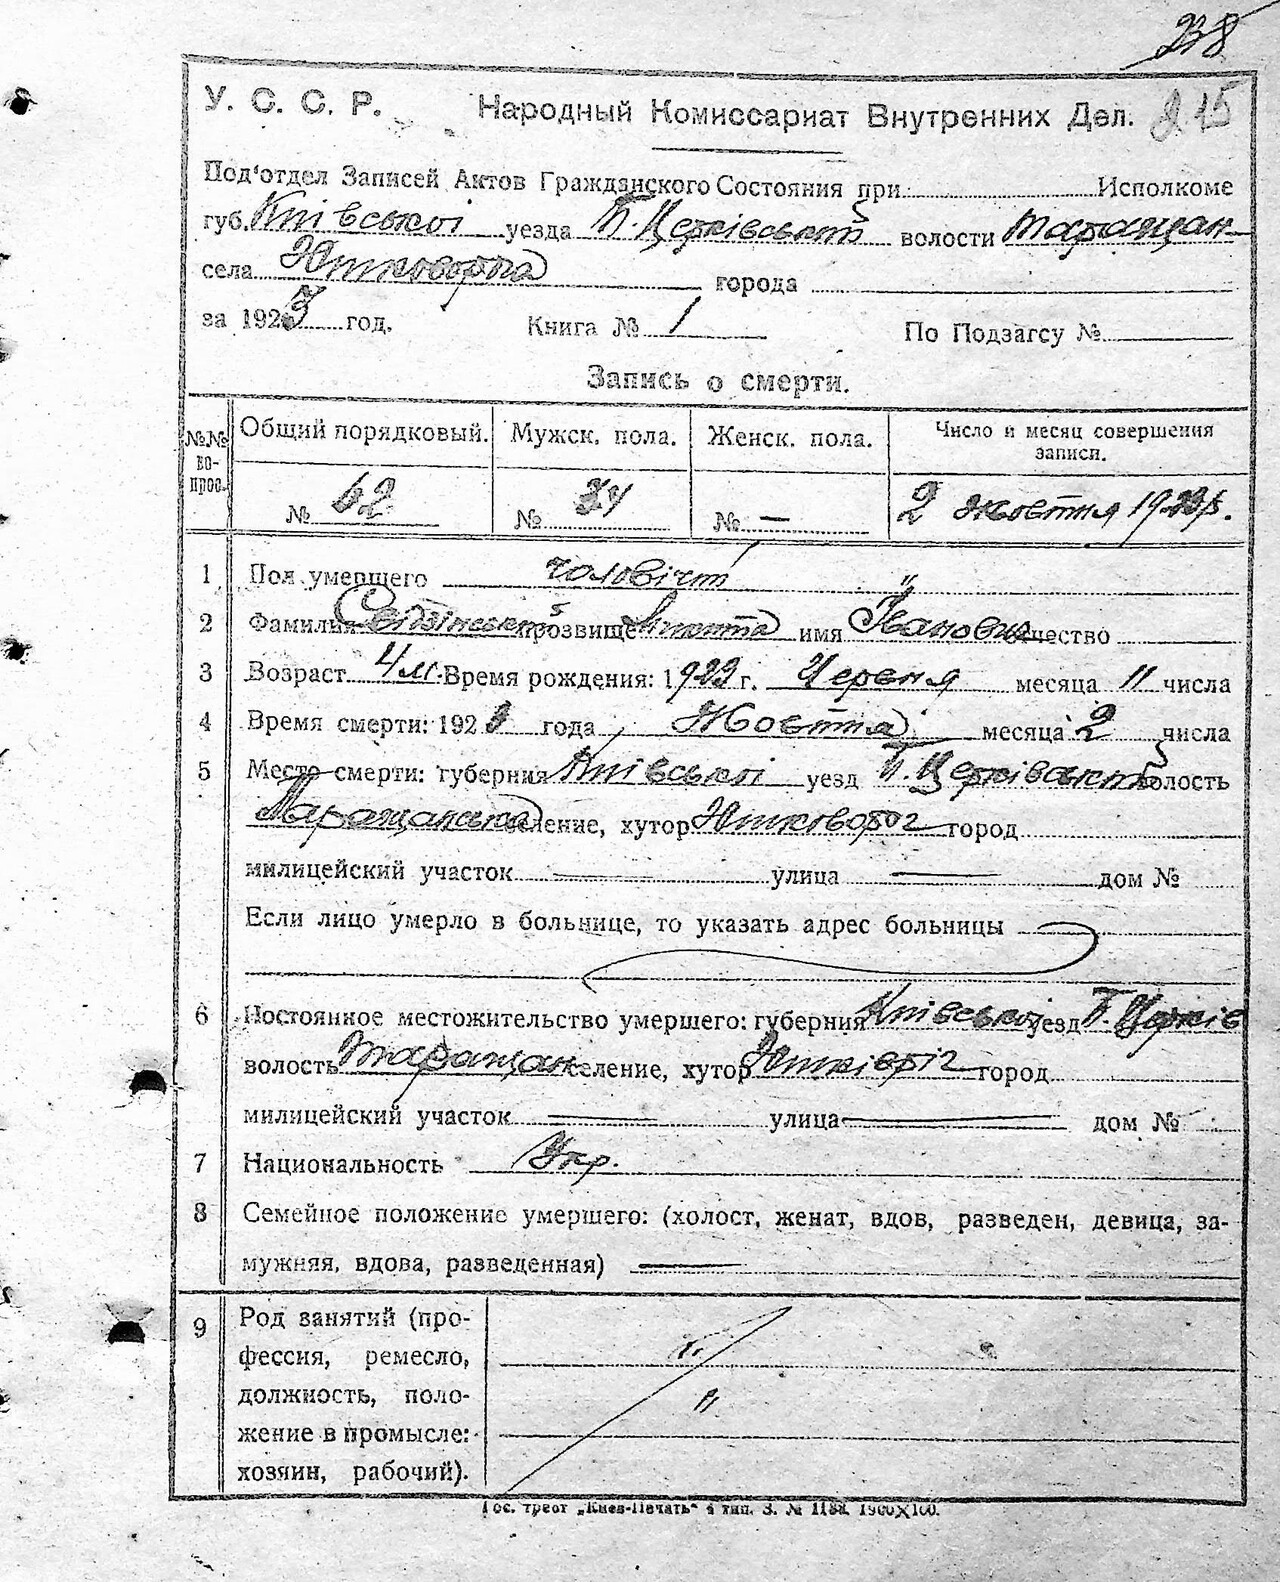 238
У. С. С. Р. Народный Комиссариат Внутренних Дел. 215
Под'отдел Записей Актов Гражданского Состояния при Исполкоме
губ. Київської уезда Б. Церківський волости Таращан
села Юшкового города
за 1923 год. Книга № 1 По Подзагсу №
Запись о смерти.
№№ вопрос. Общий порядковый. Мужск. пола. Женск. пола. Число и месяц совершения записи.
№ 62 № 34 № — 2 жовтня 1923 р.
1 Пол умершего чоловічий "
2 Фамилия Свідзінський прозвище Микита имя Іванович отчество
3 Возраст 4 м. Время рождения: 1923 г. Червня месяца 11 числа
4 Время смерти: 1923 года Жовтня месяца 2 числа
5 Место смерти: губерния Київської уезд Б. Церківський волость
Таращанська селение, хутор Юшковоріг город
милицейский участок — улица — дом №
Если лицо умерло в больнице, то указать адрес больницы
6 Постоянное местожительство умершего: губерния Київської уезд Б. Церків
волость Таращан селение, хутор Юшківріг город
милицейский участок улица дом №
7 Национальность Укр.
8 Семейное положение умершего: (холост, женат, вдов, разведен, девица, за-
мужняя, вдова, разведенная) —
9 Род занятий (про-
фессия, ремесло, "
должность, поло- "
жение в промысле:
хозяин, рабочий).
Гос. трест „Киев-Печать" 4 тип. З. № 1188. 1900X100.